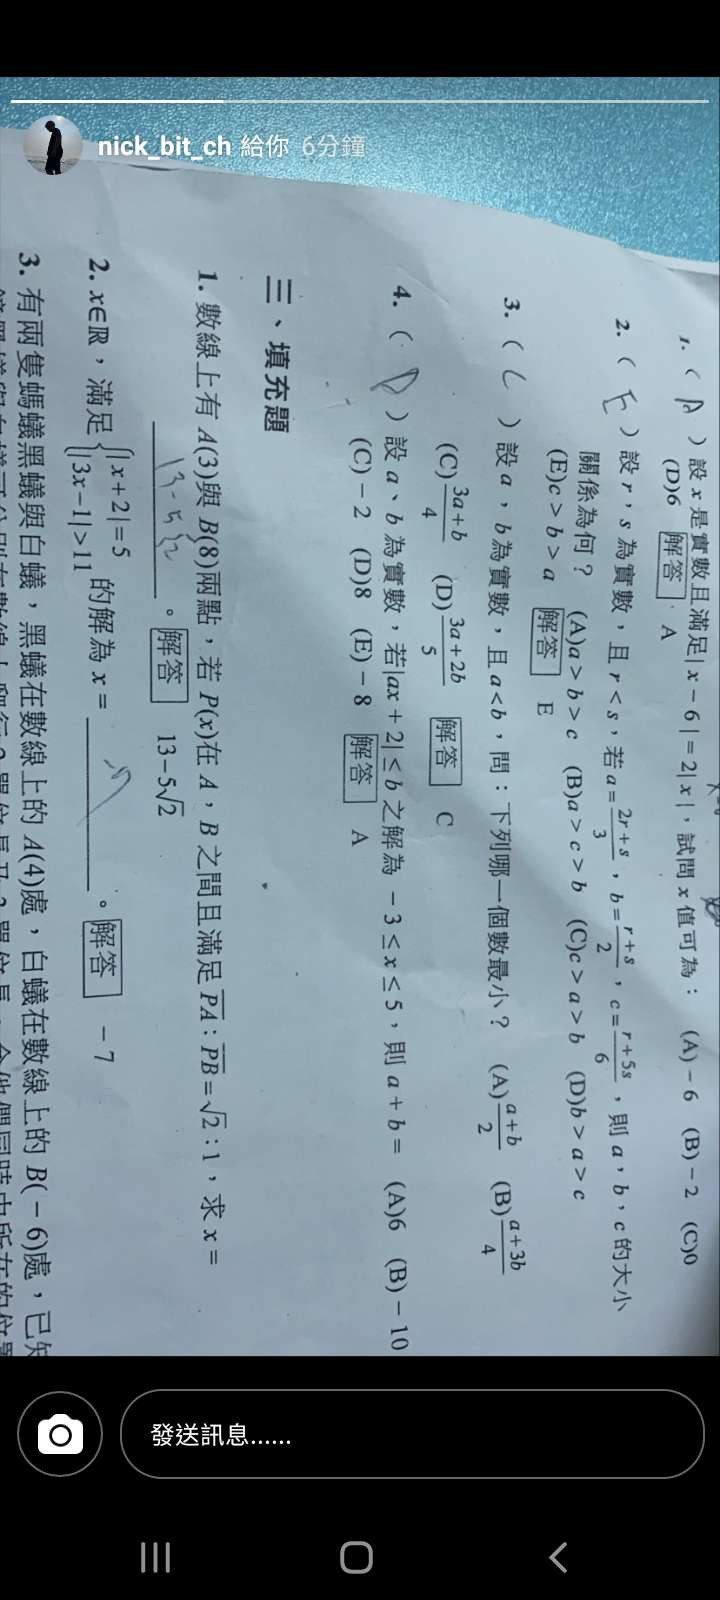 nick_bit_ch 給你 6分鐘
1. ( A ) 設 x 是實數且滿足|x－6|＝2|x|，試問 x 值可為： (A)－6 (B)－2 (C)0
(D)6 解答 A
2. ( E ) 設 r，s 為實數，且 r＜s，若 a＝\frac{2r+s}{3}，b＝\frac{r+s}{2}，c＝\frac{r+5s}{6}，則 a，b，c 的大小
關係為何？ (A)a＞b＞c (B)a＞c＞b (C)c＞a＞b (D)b＞a＞c
(E)c＞b＞a 解答 E
3. ( C ) 設 a，b 為實數，且 a＜b，問：下列哪一個數最小？ (A)\frac{a+b}{2} (B)\frac{a+3b}{4}
(C)\frac{3a+b}{4} (D)\frac{3a+2b}{5} 解答 C
4. ( D ) 設 a、b 為實數，若|ax＋2|≤b 之解為 －3≤x≤5，則 a＋b＝ (A)6 (B)－10
(C)－2 (D)8 (E)－8 解答 A
三、填充題
1. 數線上有 A(3)與 B(8)兩點，若 P(x)在 A，B 之間且滿足 PA：PB＝√2：1，求 x＝
13-5√2 。 解答 13－5√2
2. x∈ℝ，滿足{|x＋2|＝5
|3x－1|＞11 的解為 x＝ -7 。 解答 －7
3. 有兩隻螞蟻黑蟻與白蟻，黑蟻在數線上的 A(4)處，白蟻在數線上的 B(－6)處，已知
發送訊息......